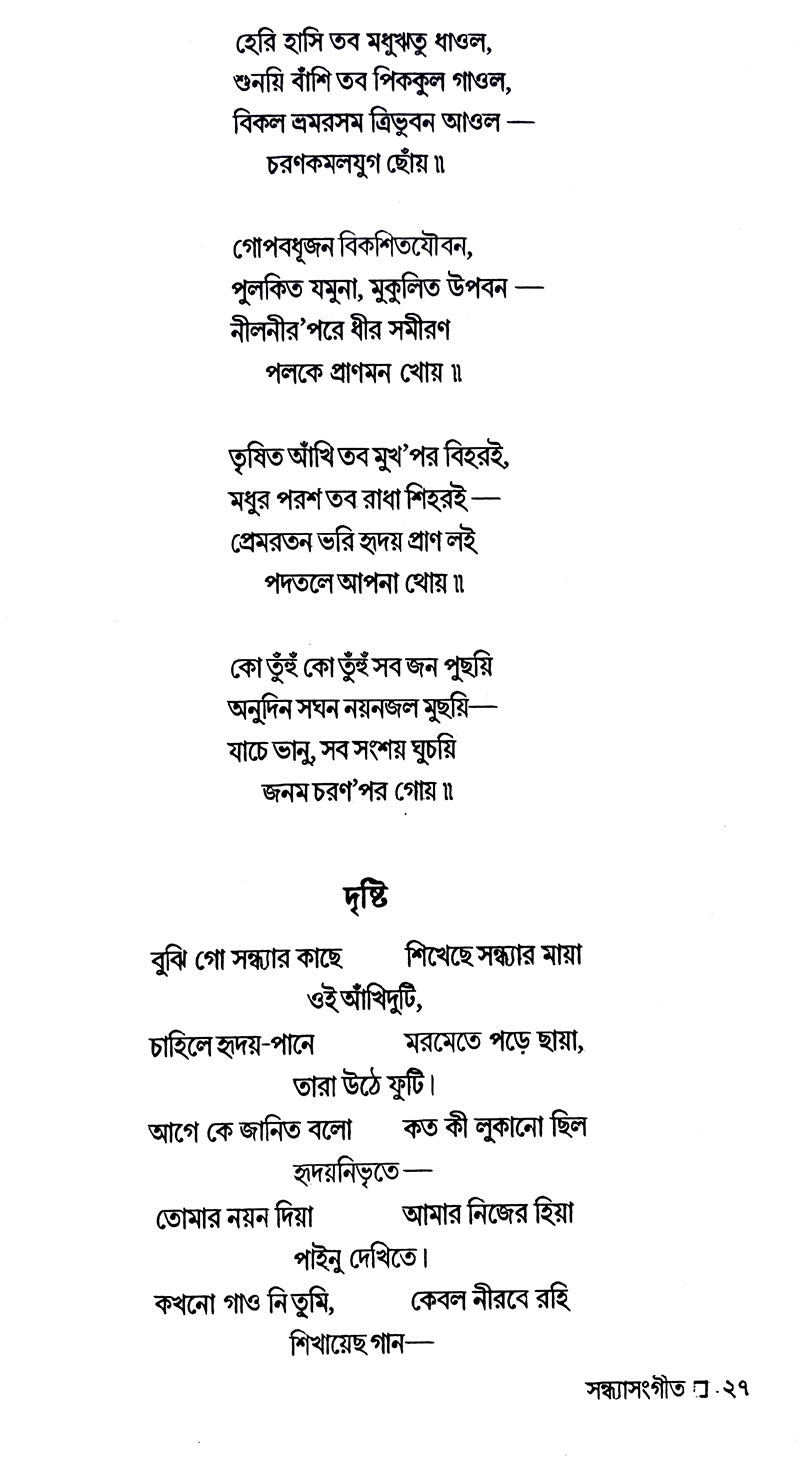 হেরি হাসি তব মধুঋতু ধাওল,
শুনয়ি বাঁশি তব পিককুল গাওল,
বিকল ভ্রমরসম ত্রিভুবন আওল —
চরণকমলযুগ ছোঁয় ॥
গোপবধূজন বিকশিতযৌবন,
পুলকিত যমুনা, মুকুলিত উপবন —
নীলনীর’পরে ধীর সমীরণ
পলকে প্রাণমন খোয় ॥
তৃষিত আঁখি তব মুখ’পর বিহরই,
মধুর পরশ তব রাধা শিহরই —
প্রেমরতন ভরি হৃদয় প্রাণ লই
পদতলে আপনা থোয় ॥
কো তুঁহুঁ কো তুঁহুঁ সব জন পুছয়ি
অনুদিন সঘন নয়নজল মুছয়ি—
যাচে ভানু, সব সংশয় ঘুচয়ি
জনম চরণ’পর গোয় ॥
দৃষ্টি
বুঝি গো সন্ধ্যার কাছে শিখেছে সন্ধ্যার মায়া
ওই আঁখিদুটি,
চাহিলে হৃদয়-পানে মরমেতে পড়ে ছায়া,
তারা উঠে ফুটি।
আগে কে জানিত বলো কত কী লুকানো ছিল
হৃদয়নিভৃতে—
তোমার নয়ন দিয়া আমার নিজের হিয়া
পাইনু দেখিতে।
কখনো গাও নি তুমি, কেবল নীরবে রহি
শিখায়েছ গান—
সন্ধ্যাসংগীত □ ২৭